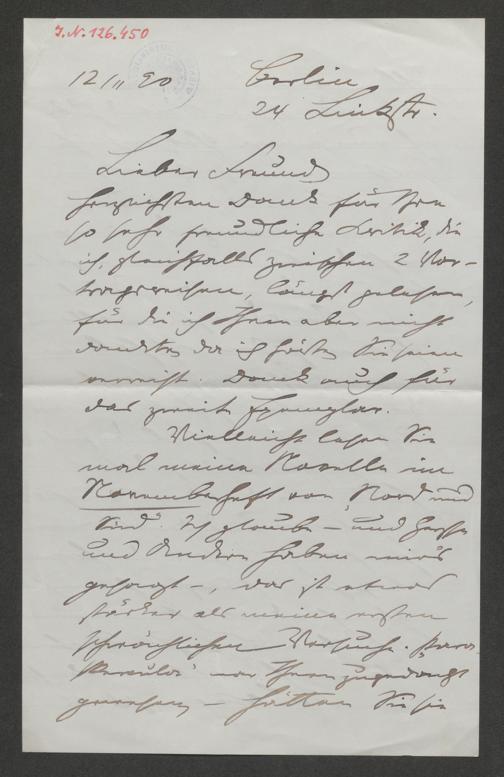 J.N. 126.450
12/11 90 Berlin
24 Linkstr.
Lieber Freund
herzlichsten Dank für Ihre
so sehr freundliche Kritik, die
ich, gleichfalls zwischen 2 Vor-
tragsreisen, längst gelesen,
für die ich Ihnen aber nicht
dankte, da ich hörte Sie seien
verreist. Dank auch für
das zweite Exemplar.
Vielleicht lesen Sie
mal meine Novelle im
Novemberheft von "Nord und
Süd". Ich glaube – und Heyse
und Andere haben mir's
gesagt –, das ist etwas
stärker als meine ersten
schwächlichen Versuche.
war Ihnen zugedacht
gewesen – hätten Sie sie